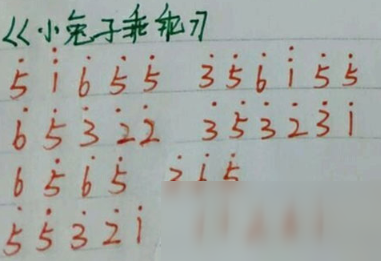 《小兔子乖乖》
5̇ i̇ 6̇ 5̇ 5̇ 3̇ 5̇ 6̇ i̇ 5̇ 5̇
6̇ 5̇ 3̇ 2̇ 2̇ 3̇ 5̇ 3̇ 2̇ 3̇ i̇
6 5̇ 6̇ 5̇ 2̇ i̇ 5̇
5̇ 5̇ 3̇ 2̇ i̇